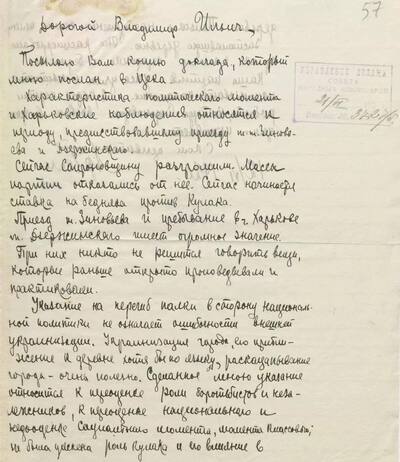 57
Дорогой Владимир Ильич,
Посылаю Вам копию доклада, который
мною послан в Цека
Характеристика политического момента
и Харьковские наблюдения относятся к
периоду, предшествовавшему приезду т.т. Зиновь-
ева и Дзержинского.
Сейчас Сапроновщину разгромили. Массы
партии отказались от нее. Сейчас начинается
ставка на бедняка против Кулака.
Приезд т. Зиновьева и пребывание в г. Харькове
т. Дзержинского имеет огромное значение.
При них никто не решится говорить вещи,
которые раньше открыто произносились и
практиковали.
Указание на перегиб палки в сторону националь-
ной политики не означает ошибочности внешней
украинизации. Украинизация города, его прибли-
жение к деревне хотя бы по языку, раскацапывание
города - очень полезно. Сделанное мною указание
относится к переоценке роли боротьбистов и неза-
лежников, к переоценке национального и
недооценке социального момента, момента классовый;
не была учтена роль кулака и его влияние в